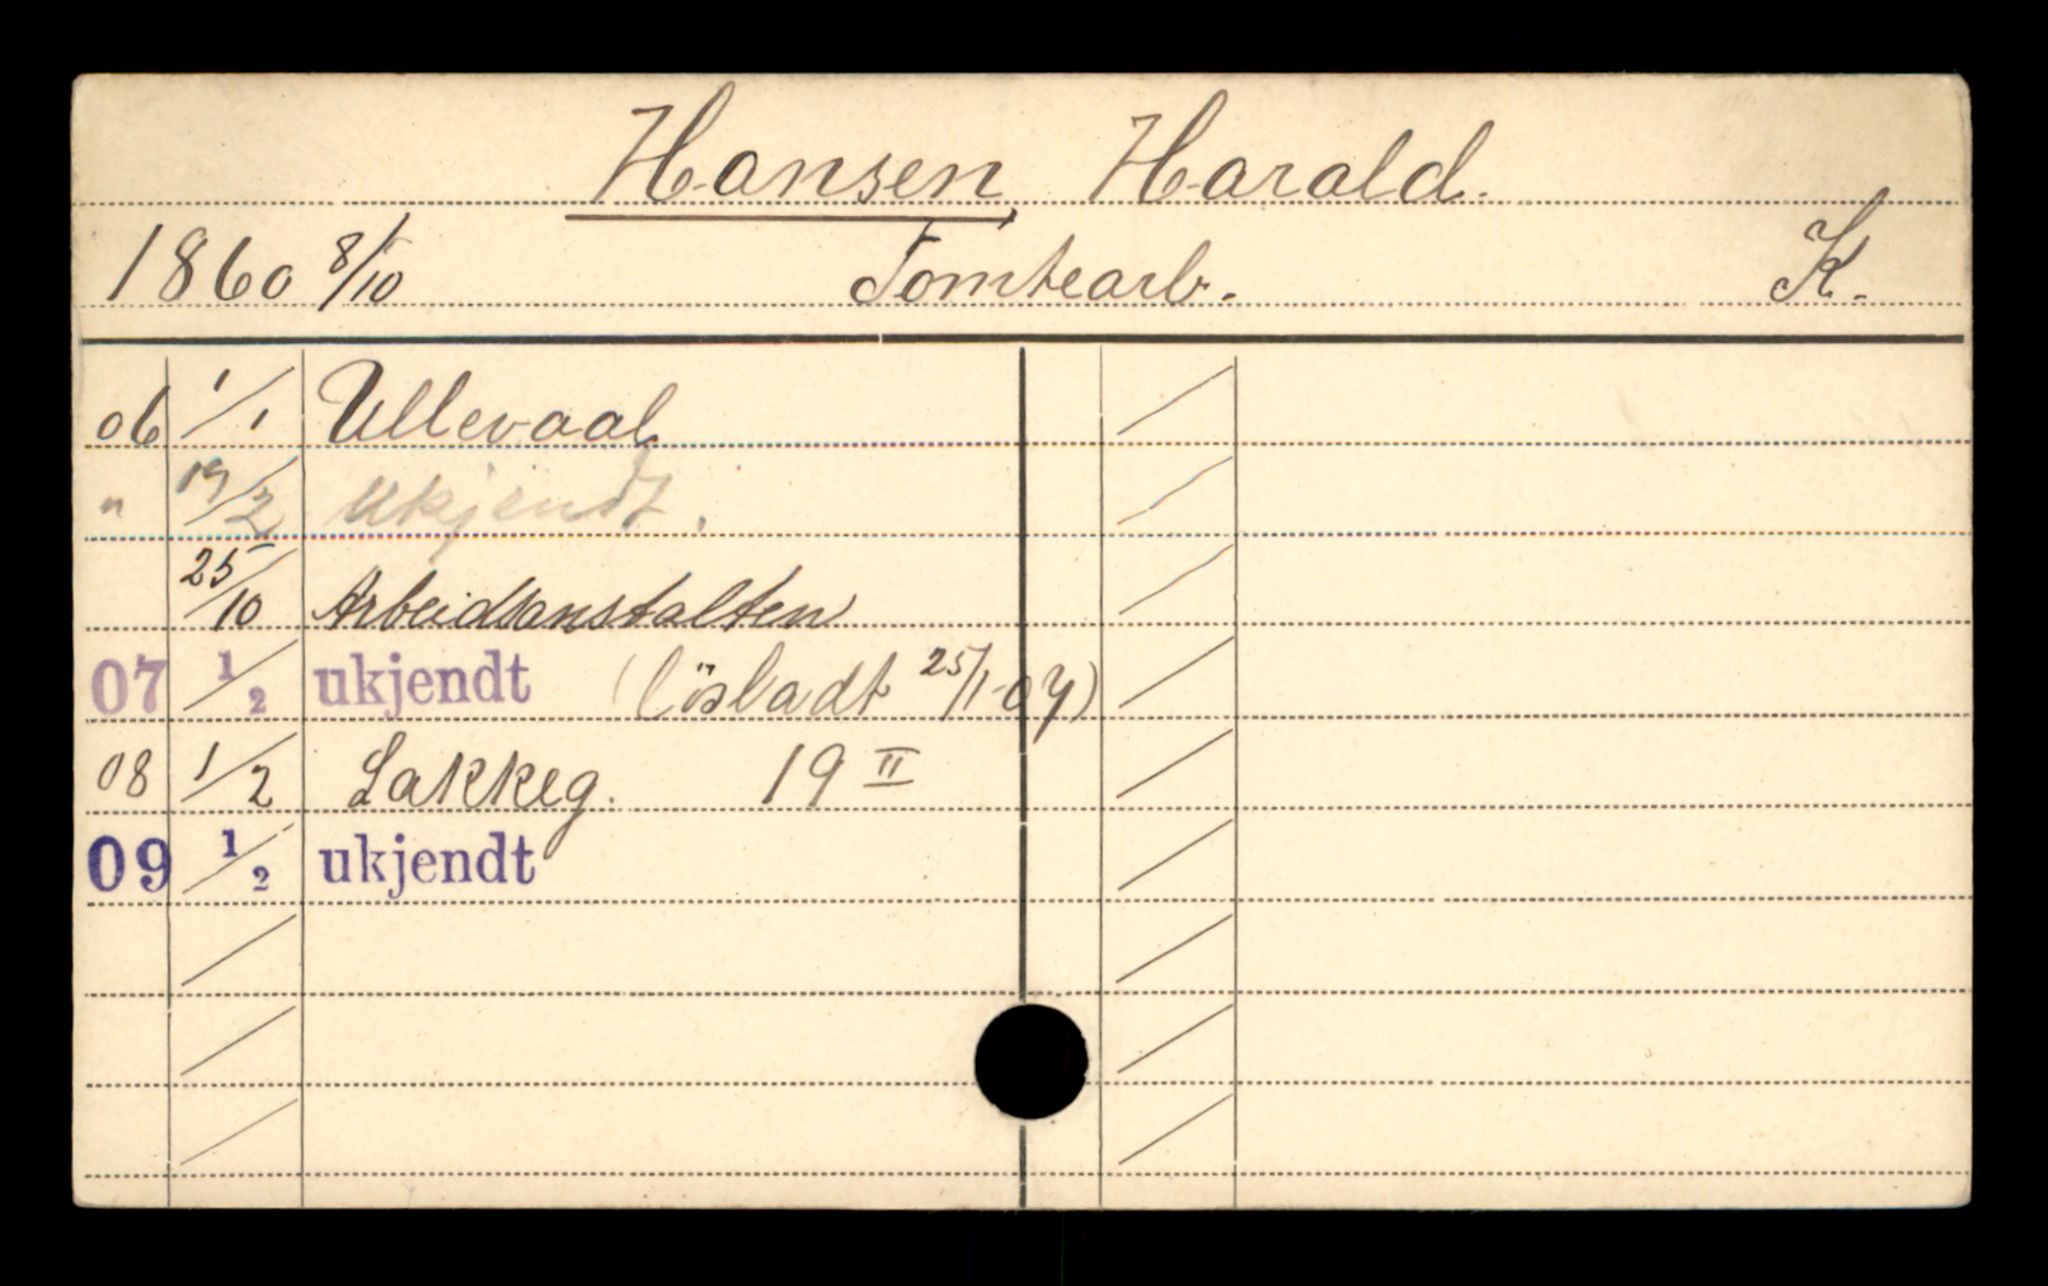 Hansen, Harald.
1860 8/10 Tomtearb. K.
06 1/1 Ullevaal
" 19/2 Ukjendt.
25/10 Arbeidsanstalten
07 1/2 ukjendt (lösladt 25/1-07)
08 1/2 Lakkeg. 19 II
09 1/2 ukjendt